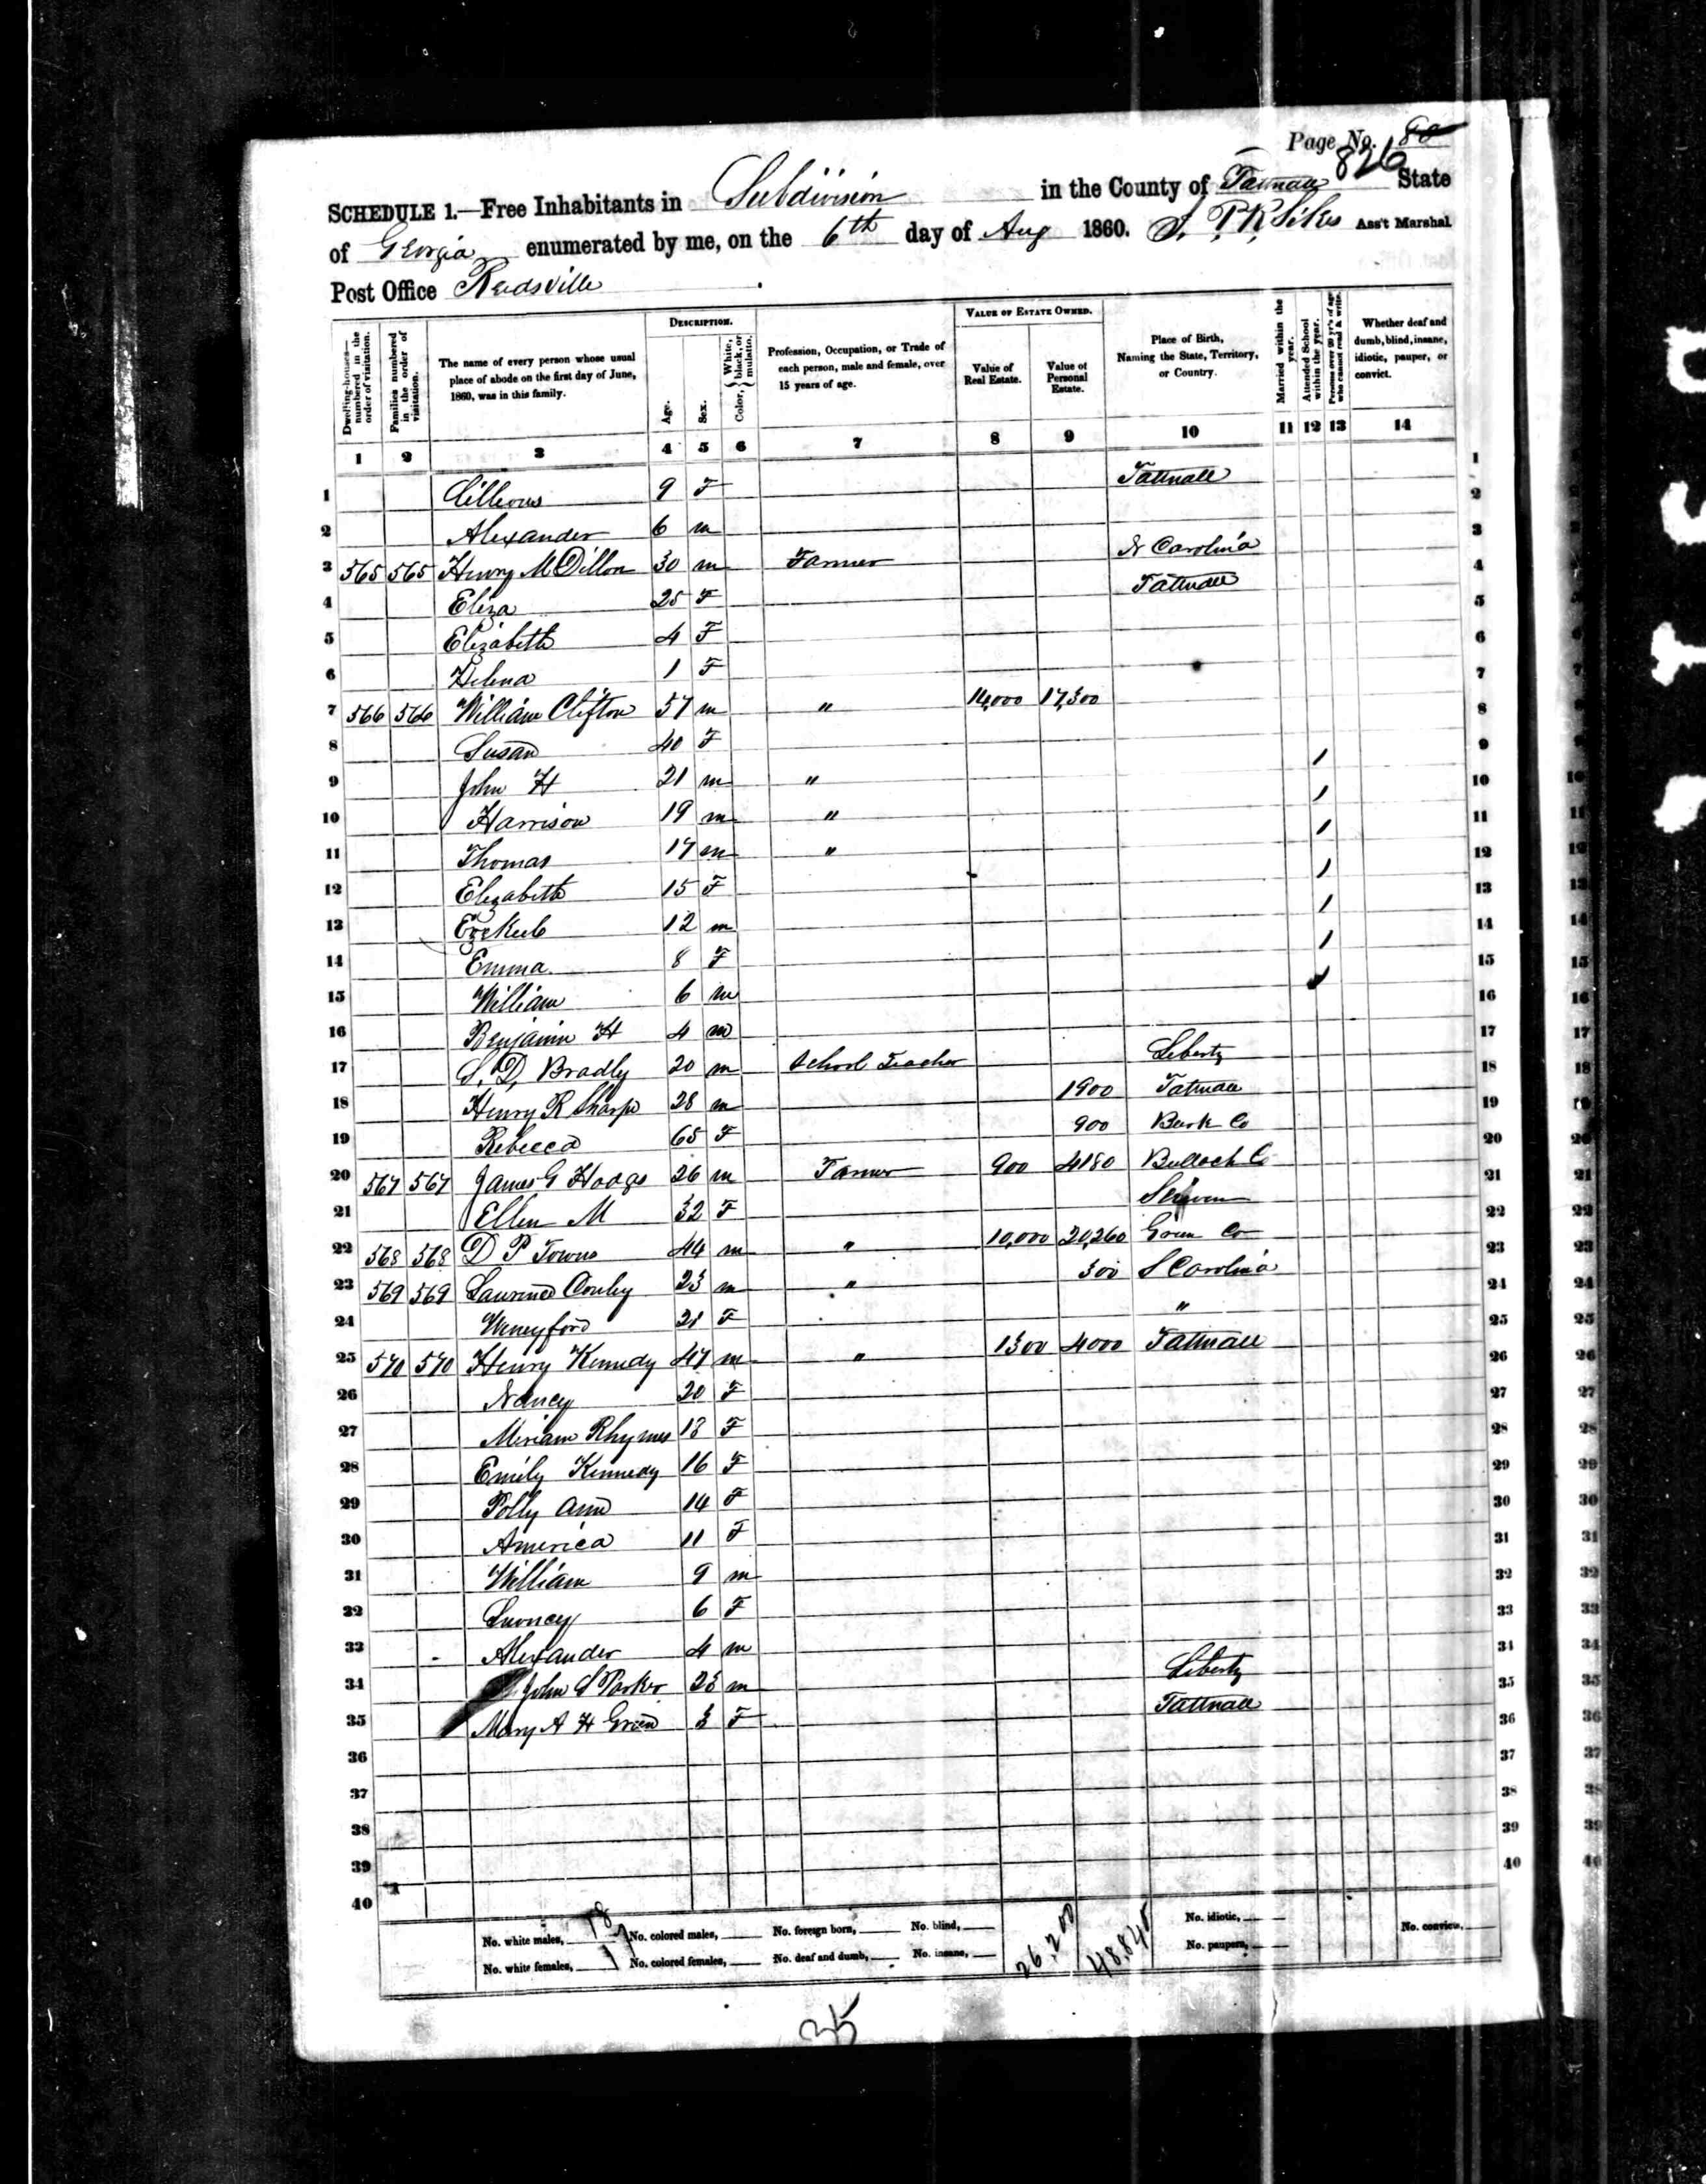 Page No. 80
826
SCHEDULE 1.—Free Inhabitants in Subdivision in the County of Tattnall State
of Georgia enumerated by me, on the 6th day of Aug 1860. S. P. K. Sikes Ass't Marshal
Post Office Reidsville
DESCRIPTION. VALUE OF ESTATE OWNED.
Dwelling-houses—numbered in the order of visitation.
Families numbered in the order of visitation.
The name of every person whose usual place of abode on the first day of June, 1860, was in this family.
Age.
Sex.
Color, White, black, or mulatto.
Profession, Occupation, or Trade of each person, male and female, over 15 years of age.
Value of Real Estate.
Value of Personal Estate.
Place of Birth, Naming the State, Territory, or Country.
Married within the year.
Attended School within the year.
Persons over 20 yr's of age who cannot read & write.
Whether deaf and dumb, blind, insane, idiotic, pauper, or convict.
1 2 3 4 5 6 7 8 9 10 11 12 13 14
1 9 F Tattnall 1
2 Alexander 6 m 2
3 565 565 Henry M Dillon 30 m Farmer N Carolina 3
4 Eliza 25 F Tattnall 4
5 Elizabeth 4 F 5
6 Helena 1 F 6
7 566 566 William Clifton 57 m " 14,000 17,500 7
8 Susan 40 F 8
9 John H 21 m " / 9
10 Harrison 19 m " / 10
11 Thomas 17 m " / 11
12 Elizabeth 15 F / 12
13 12 m / 13
14 Emma 8 F / 14
15 William 6 m / 15
16 Benjamin H 4 m 16
17 S. D. Bradly 20 m School Teacher Liberty 17
18 Henry R Sharpe 28 m 1900 Tatnall 18
19 Rebecca 65 F 900 Burk Co 19
20 567 567 James G Hodgs 26 m Farmer 900 4180 Bulloch Co 20
21 Ellen M 32 F Scriven 21
22 568 568 D P Towns 44 m " 10,000 20,260 Green Co 22
23 569 569 Laurence Conley 23 m " 300 S Carolina 23
24 21 F " 24
25 570 570 Henry Kennedy 47 m " 1300 4000 Tattnall 25
26 Nancy 20 F 26
27 Miriam Rhymes 18 F 27
28 Emily Kennedy 16 F 28
29 Polly Ann 14 F 29
30 America 11 F 30
31 William 9 m 31
32 6 F 32
33 Alexander 4 m 33
34 John S Parker 23 m Liberty 34
35 Mary A H Green 3 F Tattnall 35
36 36
37 37
38 38
39 39
40 40
No. white males, 18 No. colored males, No. foreign born, No. blind, 26,200 48,840 No. idiotic, No. convicts,
No. white females, 17 No. colored females, No. deaf and dumb, No. insane, No. paupers,
35